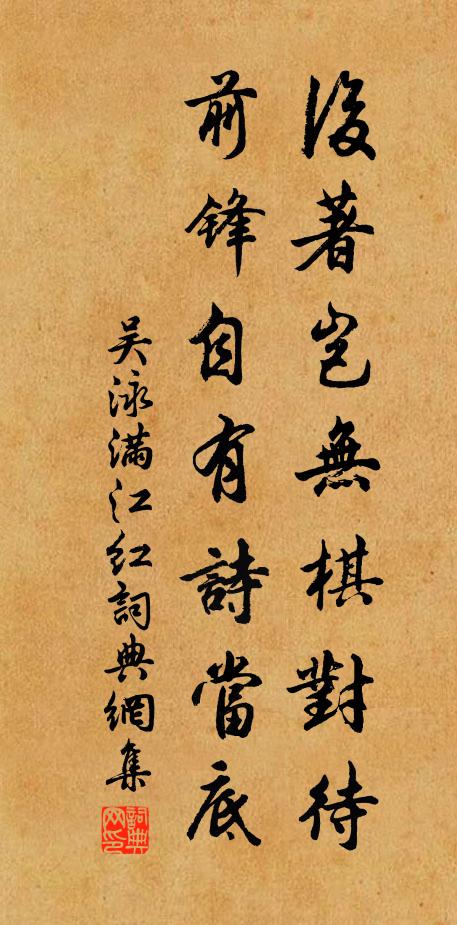 後著岂無棋對待
前锋自有詩當底
吴泳满江红詞典網集
詞典网印